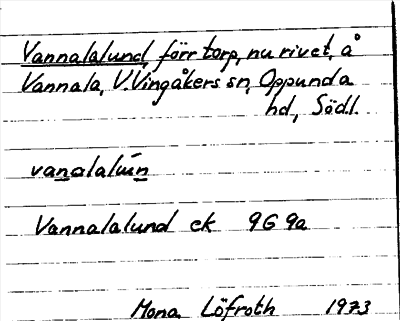 Vannalalund, förr torp, nu rivet, å
Vannala, V. Vingåkers sn, Oppunda
hd, Södl.
vanalalún
Vannalalund ek 9G 9a
Mona Löfroth 1973